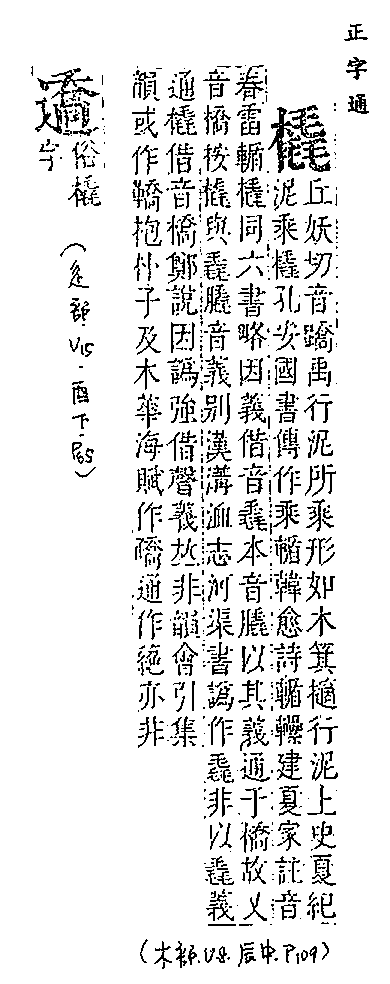 正字通
橇 丘妖切音蹺禹行泥所乘形如木箕擿行泥上史夏紀
泥乘橇孔安國書傳作乘輴韓愈詩輴欙建夏家註音
春雷輴橇同六書略因義借音毳本音膬以其義通于橋故乂
音橋按橇與毳膬音義别漢溝洫志河渠書譌作毳非以毳義
通橇借音橋鄭說因譌強借聲義𠀤非韻會引集
韻或作鞽抱朴子及木華海賦作𨅣通作絶亦非
俗橇
字
(辵部.V15.酉下.P65)
(木部.V8.辰中.P109)